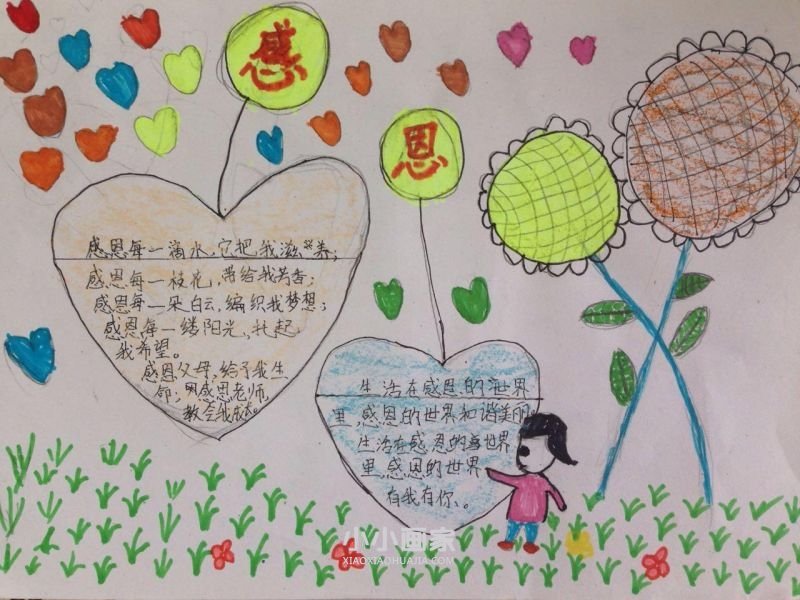 感
恩
感恩每一滴水，它把我滋养；
感恩每一枝花，带给我芳香；
感恩每一朵白云，编织我梦想；
感恩每一缕阳光，托起
我希望。
感恩父母，给予我生
命；感恩老师，
教会我成
生活在感恩的世界
里，感恩的世界和谐美丽。
生活在感恩的世界
里，感恩的世界
有我有你。
小小画家
XIAOXIAOHUAJIA.COM